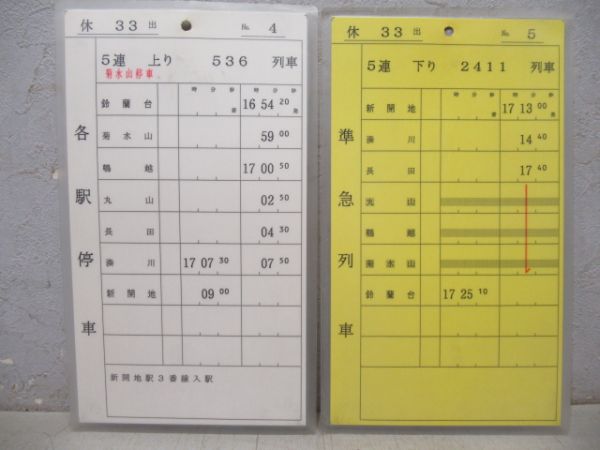 休 33 出 No. 4
5連 上り 536 列車
菊水山停車
時 分 秒 時 分 秒
各駅停車
鈴蘭台 着 16 54 20 発
菊水山 59 00
鵯越 17 00 50
丸山 02 50
長田 04 30
湊川 17 07 30 07 50
新開地 09 00
新開地駅3番線入駅
休 33 出 No. 5
5連 下り 2411 列車
時 分 秒 時 分 秒
準急列車
新開地 着 17 13 00 発
湊川 14 40
長田 17 40
丸山
鵯越
菊水山
鈴蘭台 17 25 10